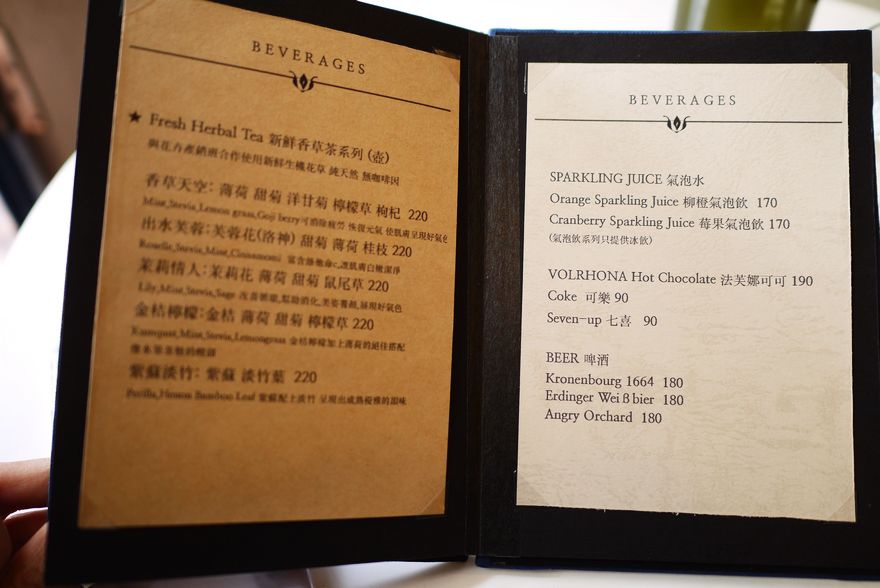 BEVERAGES
★ Fresh Herbal Tea 新鮮香草茶系列 (壺)
與花卉產銷班合作使用新鮮生機花草 純天然 無咖啡因
香草天空: 薄荷 甜菊 洋甘菊 檸檬草 枸杞 220
Mint,Stevia,Lemon grass,Goji berry可消除疲勞 恢復元氣 使肌膚呈現好氣色
出水芙蓉: 芙蓉花(洛神) 甜菊 薄荷 桂枝 220
Roselle,Stevia,Mint,Cinnamoni 富含維他命c,護肌膚白嫩潔淨
茉莉情人: 茉莉花 薄荷 甜菊 鼠尾草 220
Lily,Mint,Stevia,Sage 改善循環,幫助消化,美姿養顏,展現好氣色
金桔檸檬: 金桔 薄荷 甜菊 檸檬草 220
Kumquat,Mint,Stevia,Lemongrass 金桔檸檬加上薄荷的絕佳搭配
紫蘇淡竹: 紫蘇 淡竹葉 220
Perilla, Bamboo Leaf 紫蘇配上淡竹 呈現出成熟優雅的韻味
BEVERAGES
SPARKLING JUICE 氣泡水
Orange Sparkling Juice 柳橙氣泡飲 170
Cranberry Sparkling Juice 莓果氣泡飲 170
(氣泡飲系列只提供冰飲)
VOLRHONA Hot Chocolate 法芙娜可可 190
Coke 可樂 90
Seven-up 七喜 90
BEER 啤酒
Kronenbourg 1664 180
Erdinger Wei ß bier 180
Angry Orchard 180